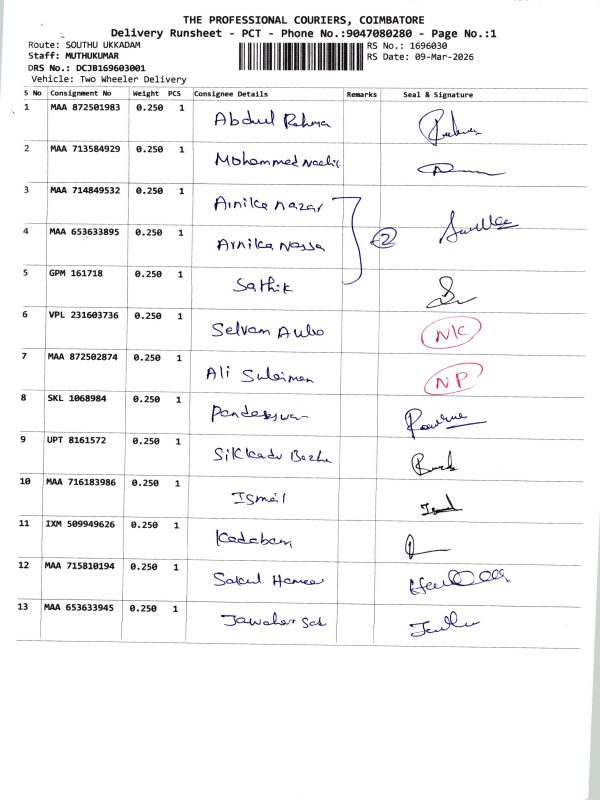 THE PROFESSIONAL COURIERS, COIMBATORE
Delivery Runsheet - PCT - Phone No.:9047080280 - Page No.:1
Route: SOUTHU UKKADAM RS No.: 1696030
Staff: MUTHUKUMAR RS Date: 09-Mar-2026
DRS No.: DCJB169603001
Vehicle: Two Wheeler Delivery
S No Consignment No Weight PCS Consignee Details Remarks Seal & Signature
1 MAA 872501983 0.250 1 Abdul Rehma
2 MAA 713584929 0.250 1 Mohammed
3 MAA 714849532 0.250 1 Arnika Nazar
4 MAA 653633895 0.250 1 Arnika Nassa 2
5 GPM 161718 0.250 1 Sathik
6 VPL 231603736 0.250 1 Selvam NIC
7 MAA 872502874 0.250 1 Ali Suleiman NP
8 SKL 1068984 0.250 1 Pandeeswar
9 UPT 8161572 0.250 1
10 MAA 716183986 0.250 1 Ismail
11 IXM 509949626 0.250 1 Kadabam
12 MAA 715810194 0.250 1
13 MAA 653633945 0.250 1 Jawahar